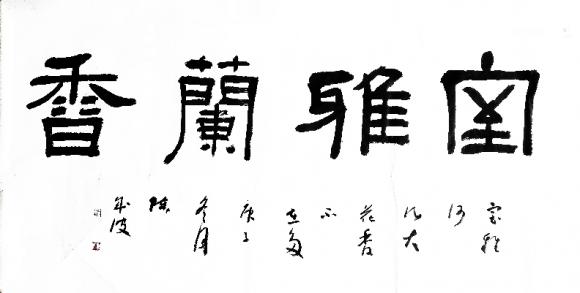 室雅蘭香
室雅
何
须大
花香
不
在多
庚子
冬月
陈